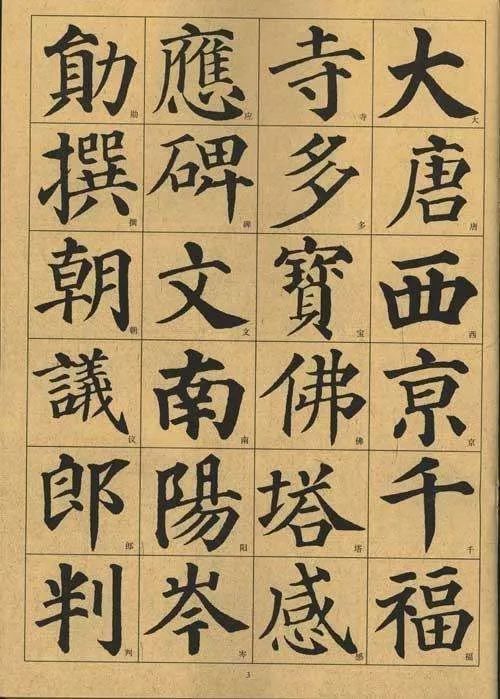 大唐西亰千福
寺多寶佛塔感
應碑文南陽岑
勛撰朝議郎判
大唐西京千福
寺多宝佛塔感
应碑文南阳岑
勋撰朝议郎判
3